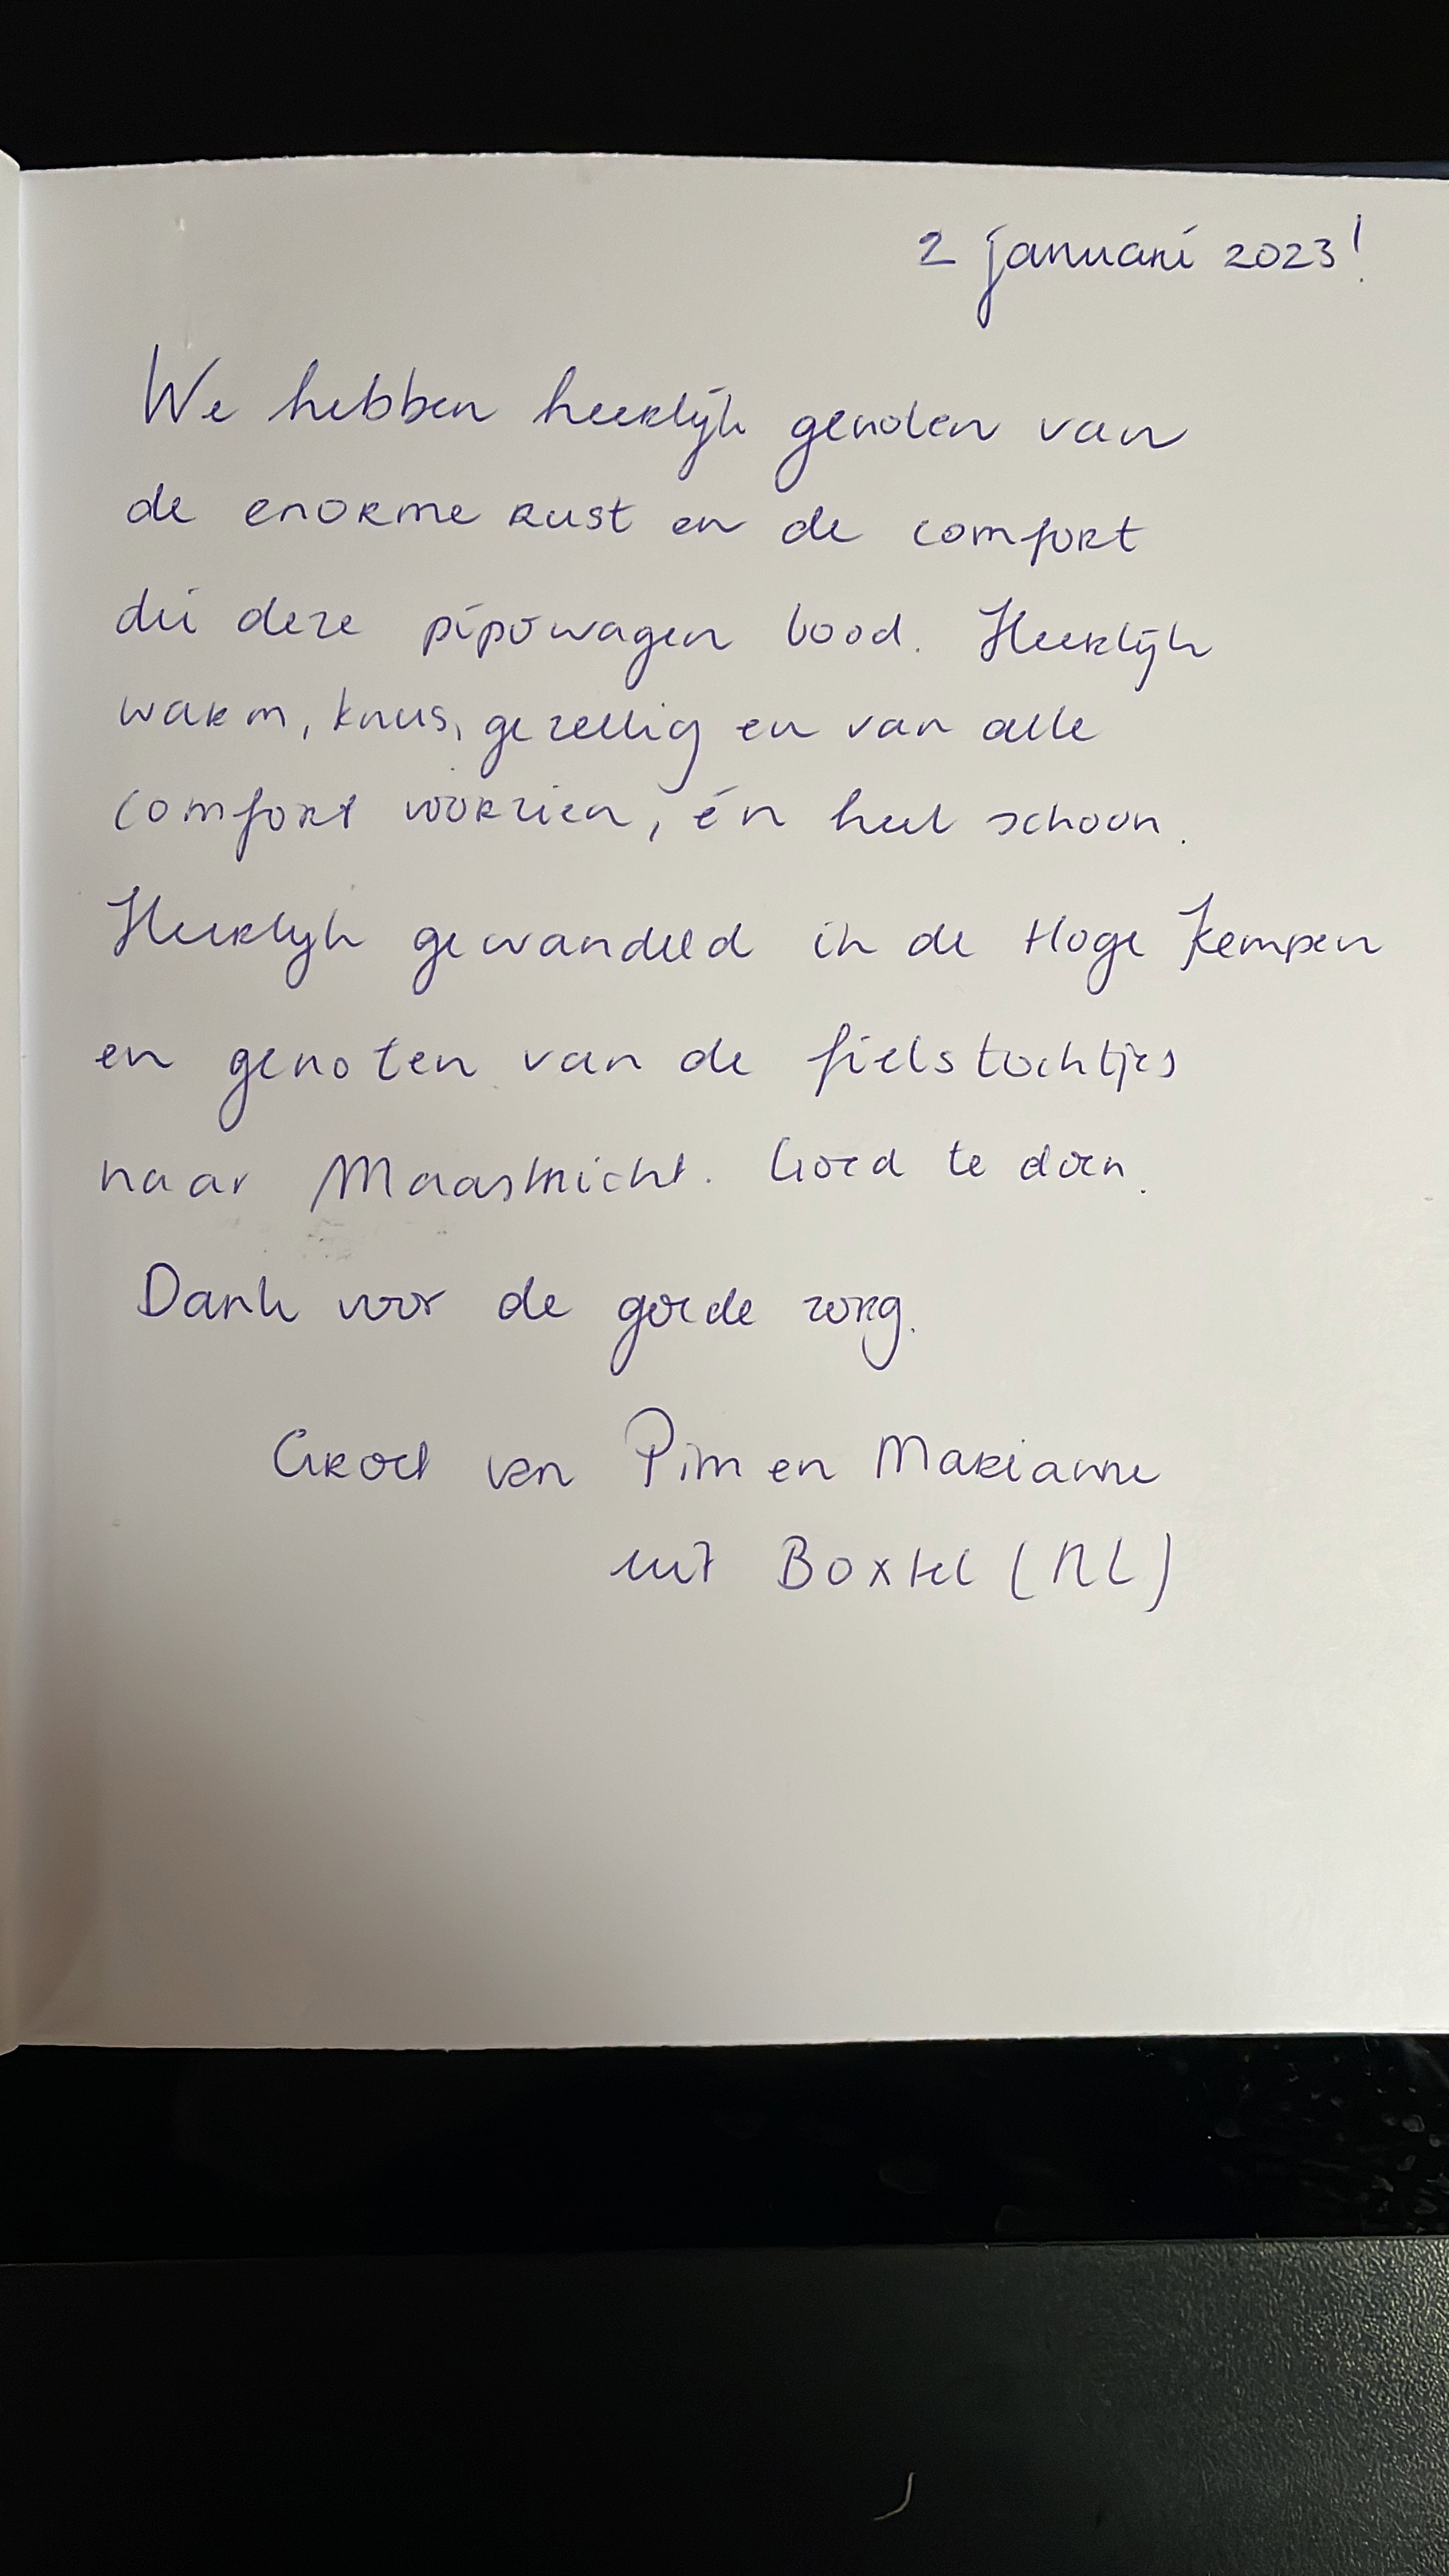 2 januari 2023!
We hebben heerlijk genoten van
de enorme rust en de comfort
die deze pipowagen bood. Heerlijk
warm, knus, gezellig en van alle
comfort voorzien, én heel schoon.
Heerlijk gewandeld in de Hoge Kempen
en genoten van de fietstochtjes
naar Maastricht. Goed te doen.
Dank voor de goede zorg.
Groet van Pim en Marianne
uit Boxtel (NL)